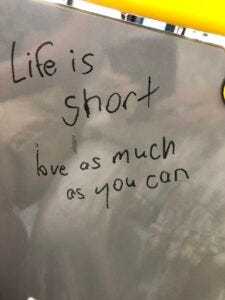 Life is
short
love as much
as you can